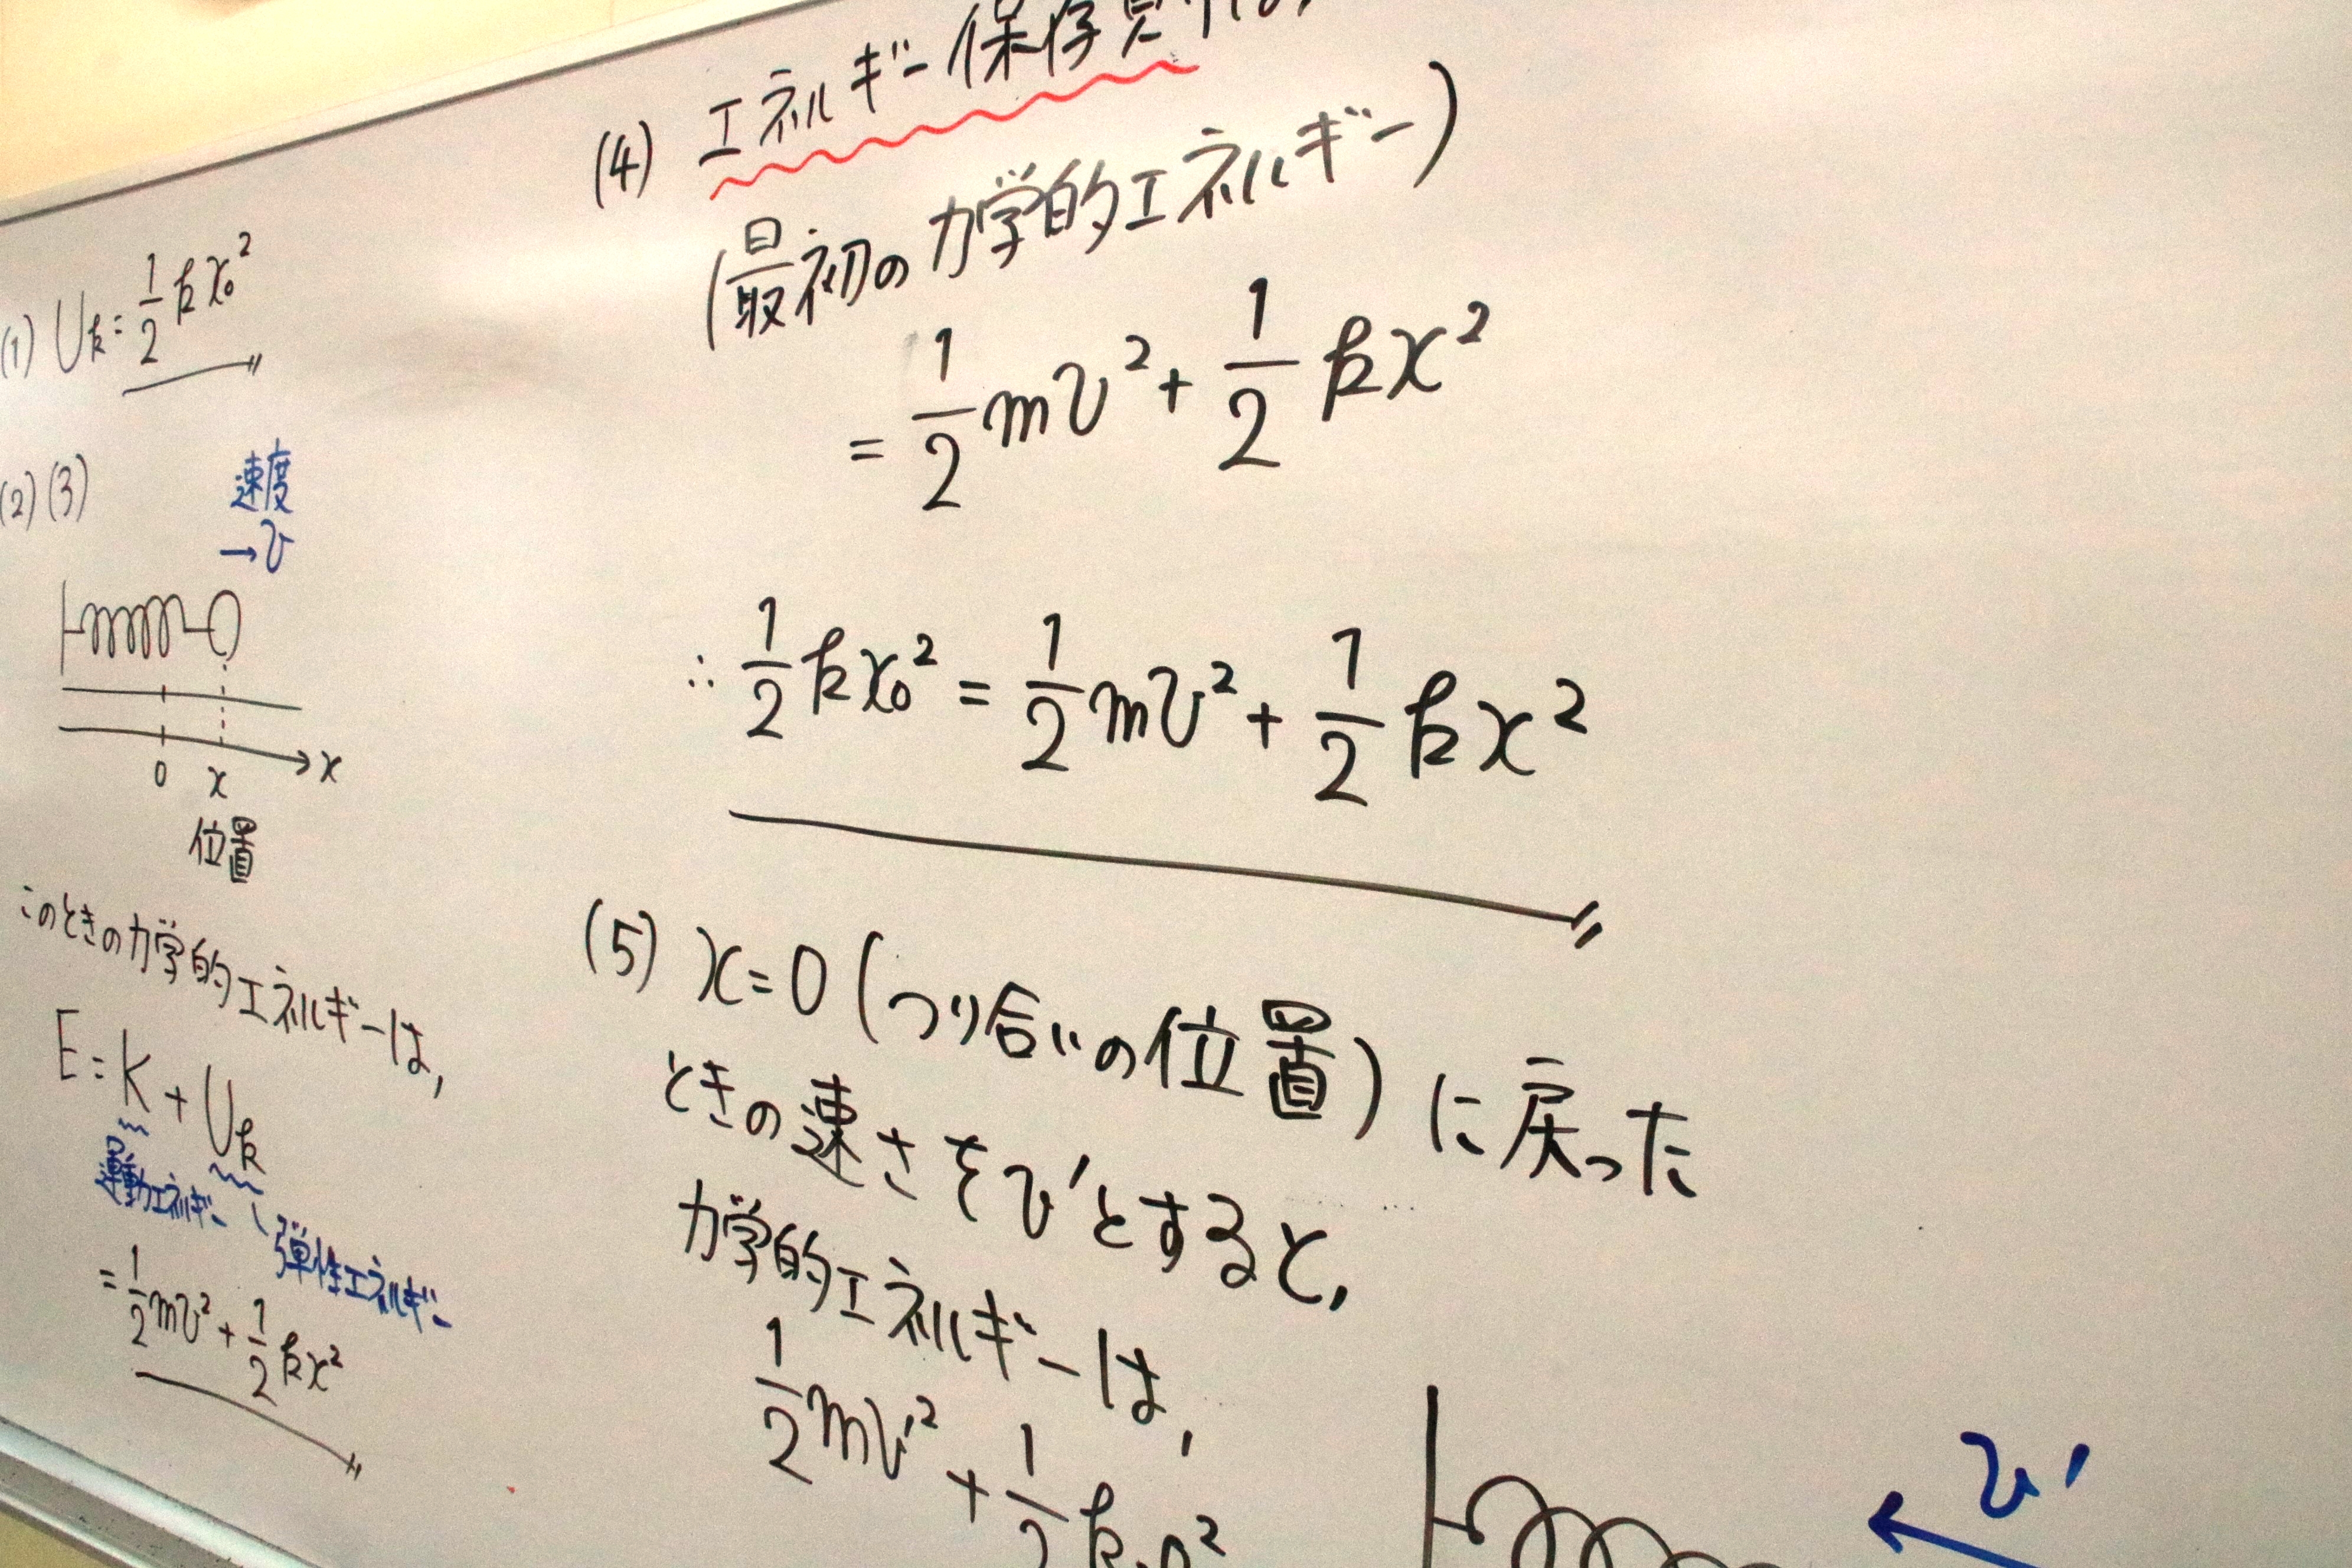 (1) U_k = 1/2 kx₀²
(2)(3)
速度
→v
0 x → x
位置
このときの力学的エネルギーは,
E = K + U_k
運動エネルギー
弾性エネルギー
= 1/2 mv² + 1/2 kx²
(4) エネルギー保存則
(最初の力学的エネルギー)
= 1/2 mv² + 1/2 kx²
∴ 1/2 kx₀² = 1/2 mv² + 1/2 kx²
(5) x=0 (つり合いの位置) に戻った
ときの速さをv'とすると,
力学的エネルギーは,
1/2 mv'² + 1/2 k·0²
v'